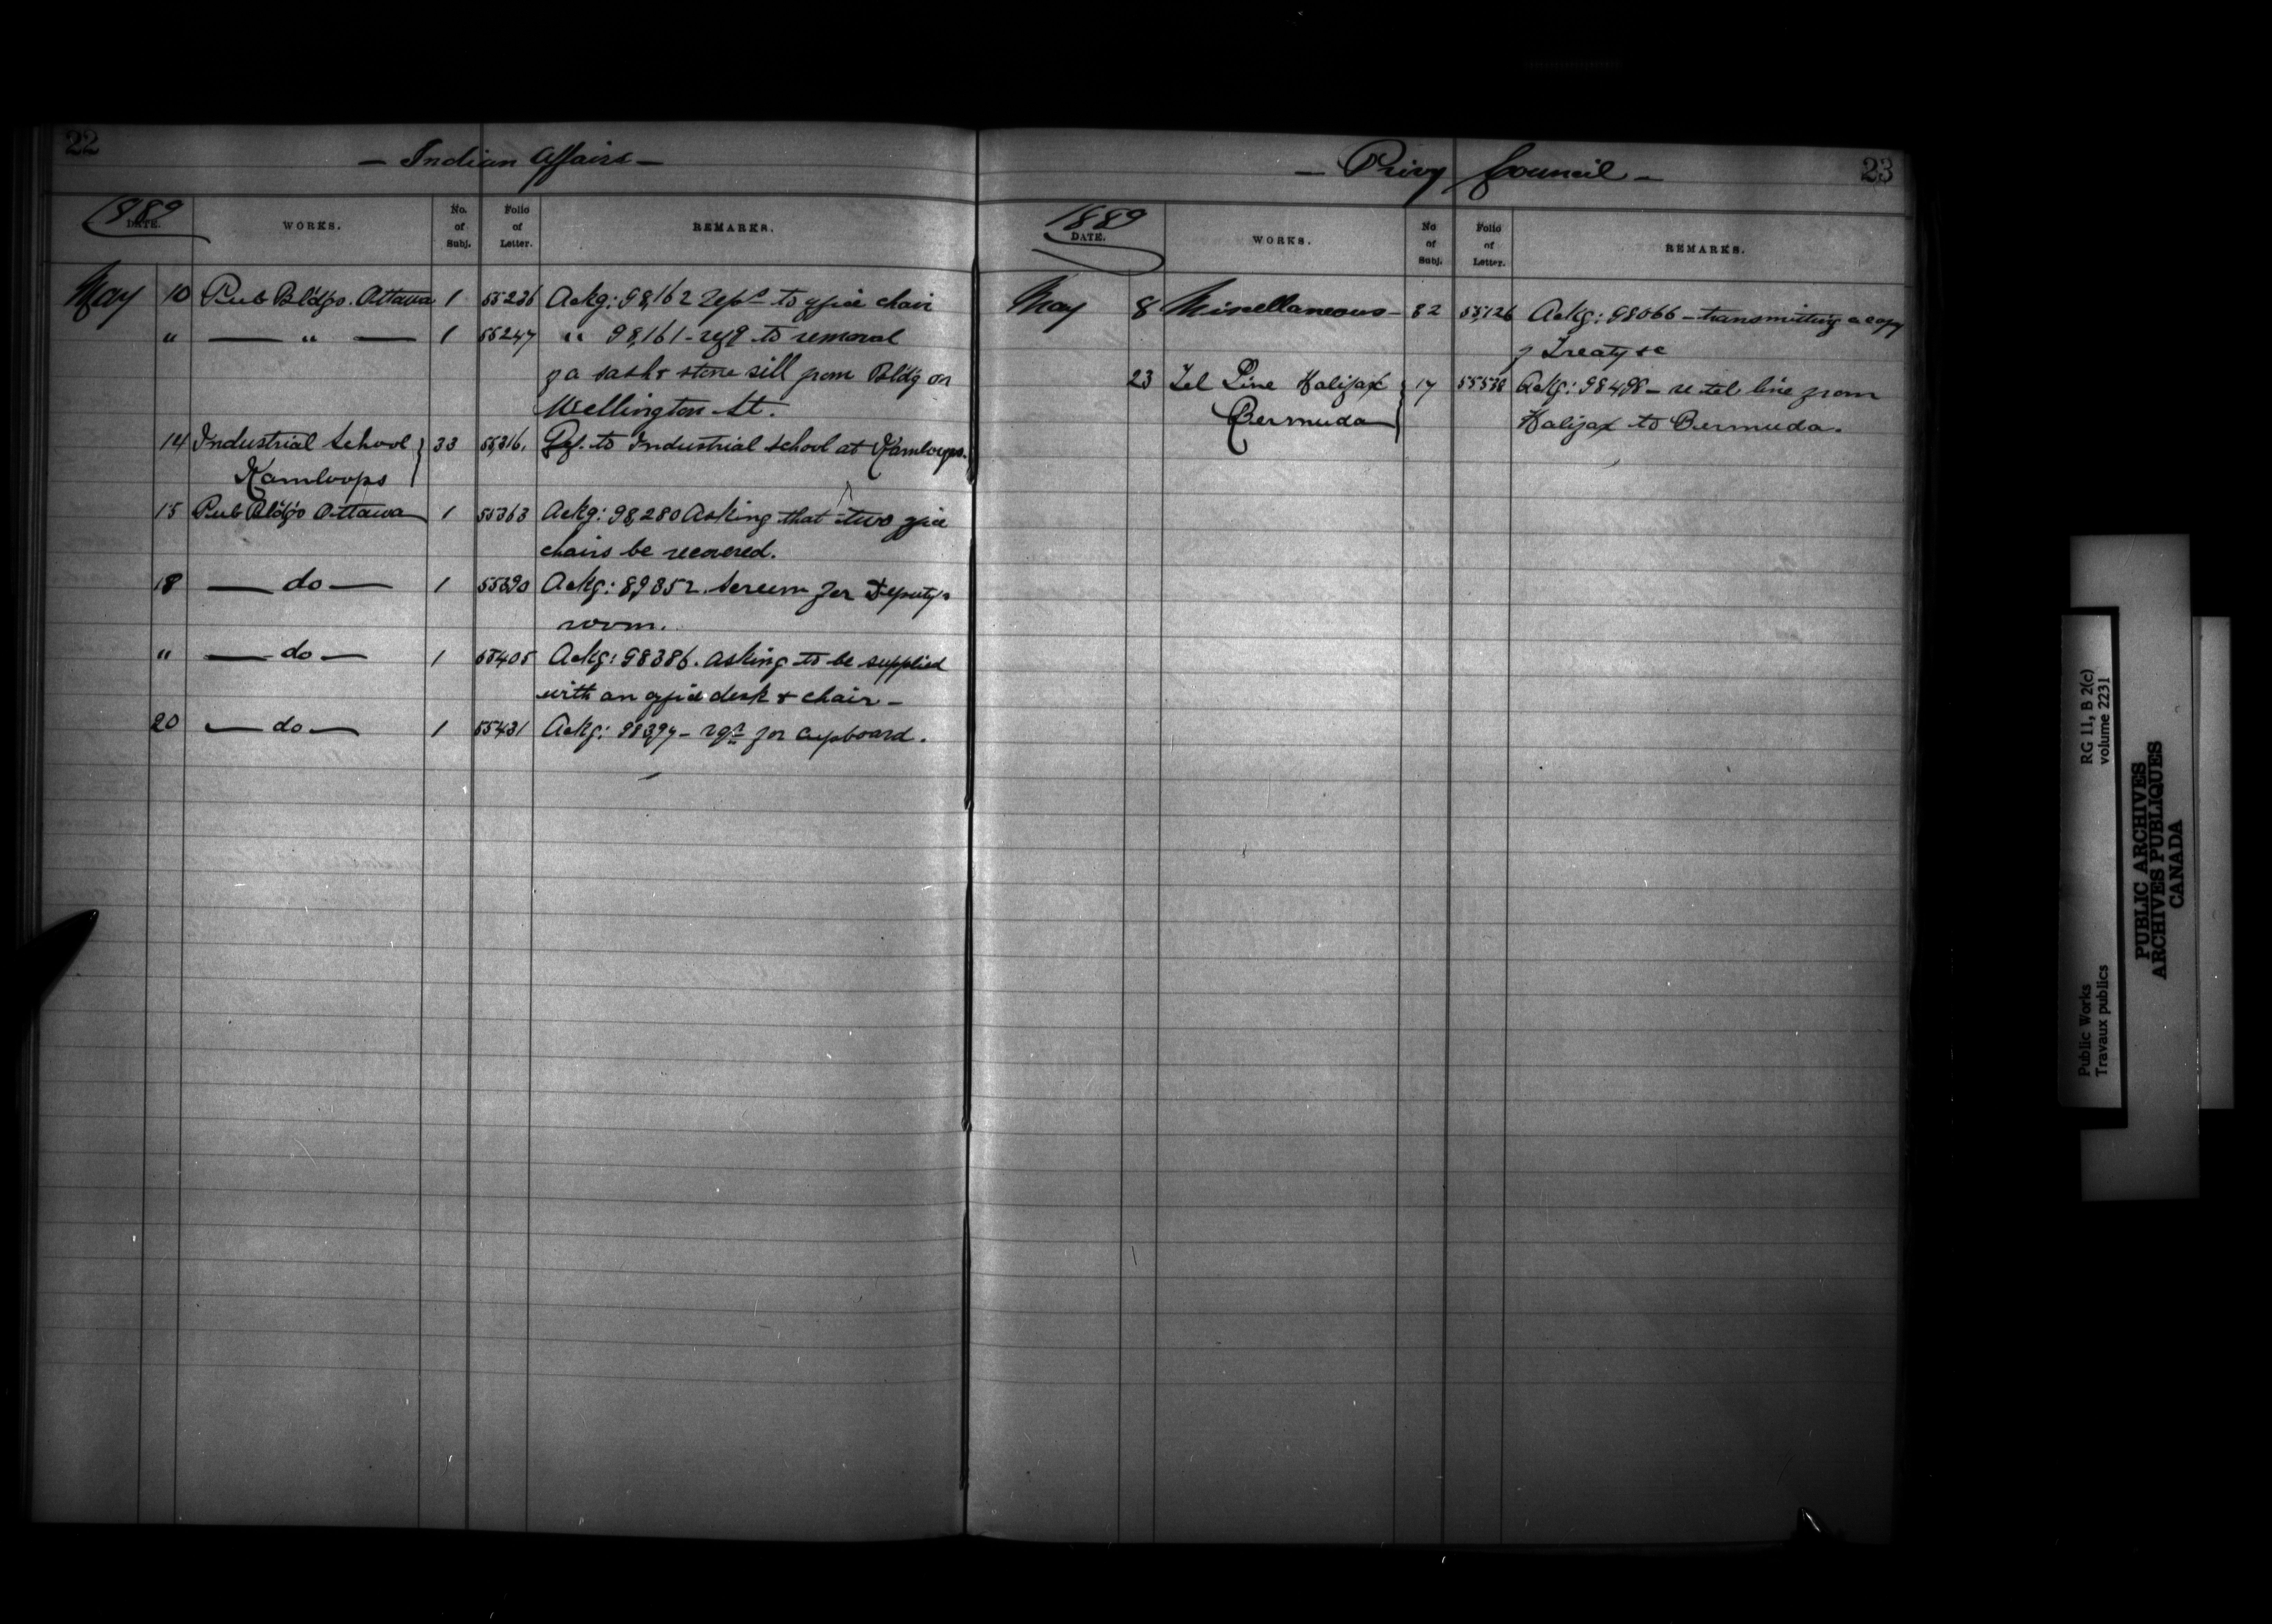 22
— Indian Affairs —
1889
DATE.
WORKS.
No. of Subj.
Folio of Letter.
REMARKS.
May 10 Pub Bldgs. Ottawa 1 55236 Ackg: 98,162 Reps to office chair
" — " — 1 55247 " 98,161 - to removal
of a sash & stone sill from Bldg on
Wellington St.
14 Industrial School } 33 55,316. Ref. to Industrial school at Kamloops.
Kamloops
15 Pub Bldgs Ottawa 1 55363 Ackg: 98,280 Asking that two office
chairs be recovered.
18 — do — 1 55390 Ackg: 89852. Screen for Deputy's
room.
" — do — 1 55405 Ackg: 98386. asking to be supplied
with an office desk & chair —
20 — do — 1 55431 Ackg: 98397 — for cupboard.
23
— Privy Council —
1889
DATE.
WORKS.
No of Subj.
Folio of Letter.
REMARKS.
May 8 Miscellaneous — 82 55,126 Ackg: 98066 — transmitting a copy
of Treaty &c
23 Tel Line Halifax } 17 55538 Ackg: 98498 — re tel line from
Bermuda Halifax to Bermuda.
Public Works
Travaux publics
RG 11, B 2(c)
volume 2231
PUBLIC ARCHIVES
ARCHIVES PUBLIQUES
CANADA